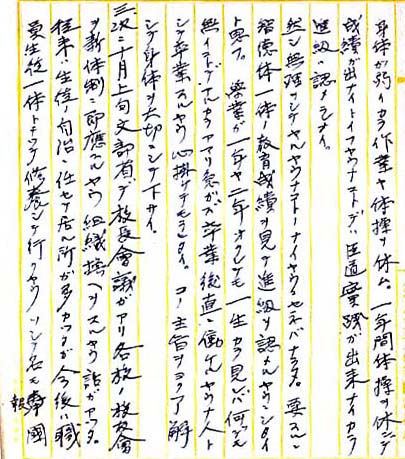 身体が弱イカラ作業ヤ体操ヲ休ム、一年間体操ヲ休ンデ
成績が出ナイトイフヤウナコトデハ臣道実践が出来ナイカラ
進級ハ認メラレナイ。
然シ無理シテヤルヤウナコトノナイヤウセネバナラヌ。要スルニ
智徳体一体ノ教育成績ヲ見テ進級ヲ認メルヤウシタイ
ト思フ。卒業が一年ヤ二年オクレテモ一生カラ見レバ何デモ
無イコトデアルカラアマリ急がズ卒業後直ニ働ケルヤウナ人ト
シテ卒業スルヤウ心掛ケテモラヒタイ。コノ主旨ヲヨクヨク了解
シテ身体ヲ大切ニシテ下サイ。
三、次ニ十月上旬文部省デ校長會議がアリ各校ノ校友會
ヲ新体制ニ即應スルヤウ組織換ヘヲスルヤウ話がアツタ。
従来ハ生徒ノ自治ニ任セテ居ル所が多カツタが今後ハ職
員生徒一体トナツテ修養シテ行クヤウソシテ名モ報國